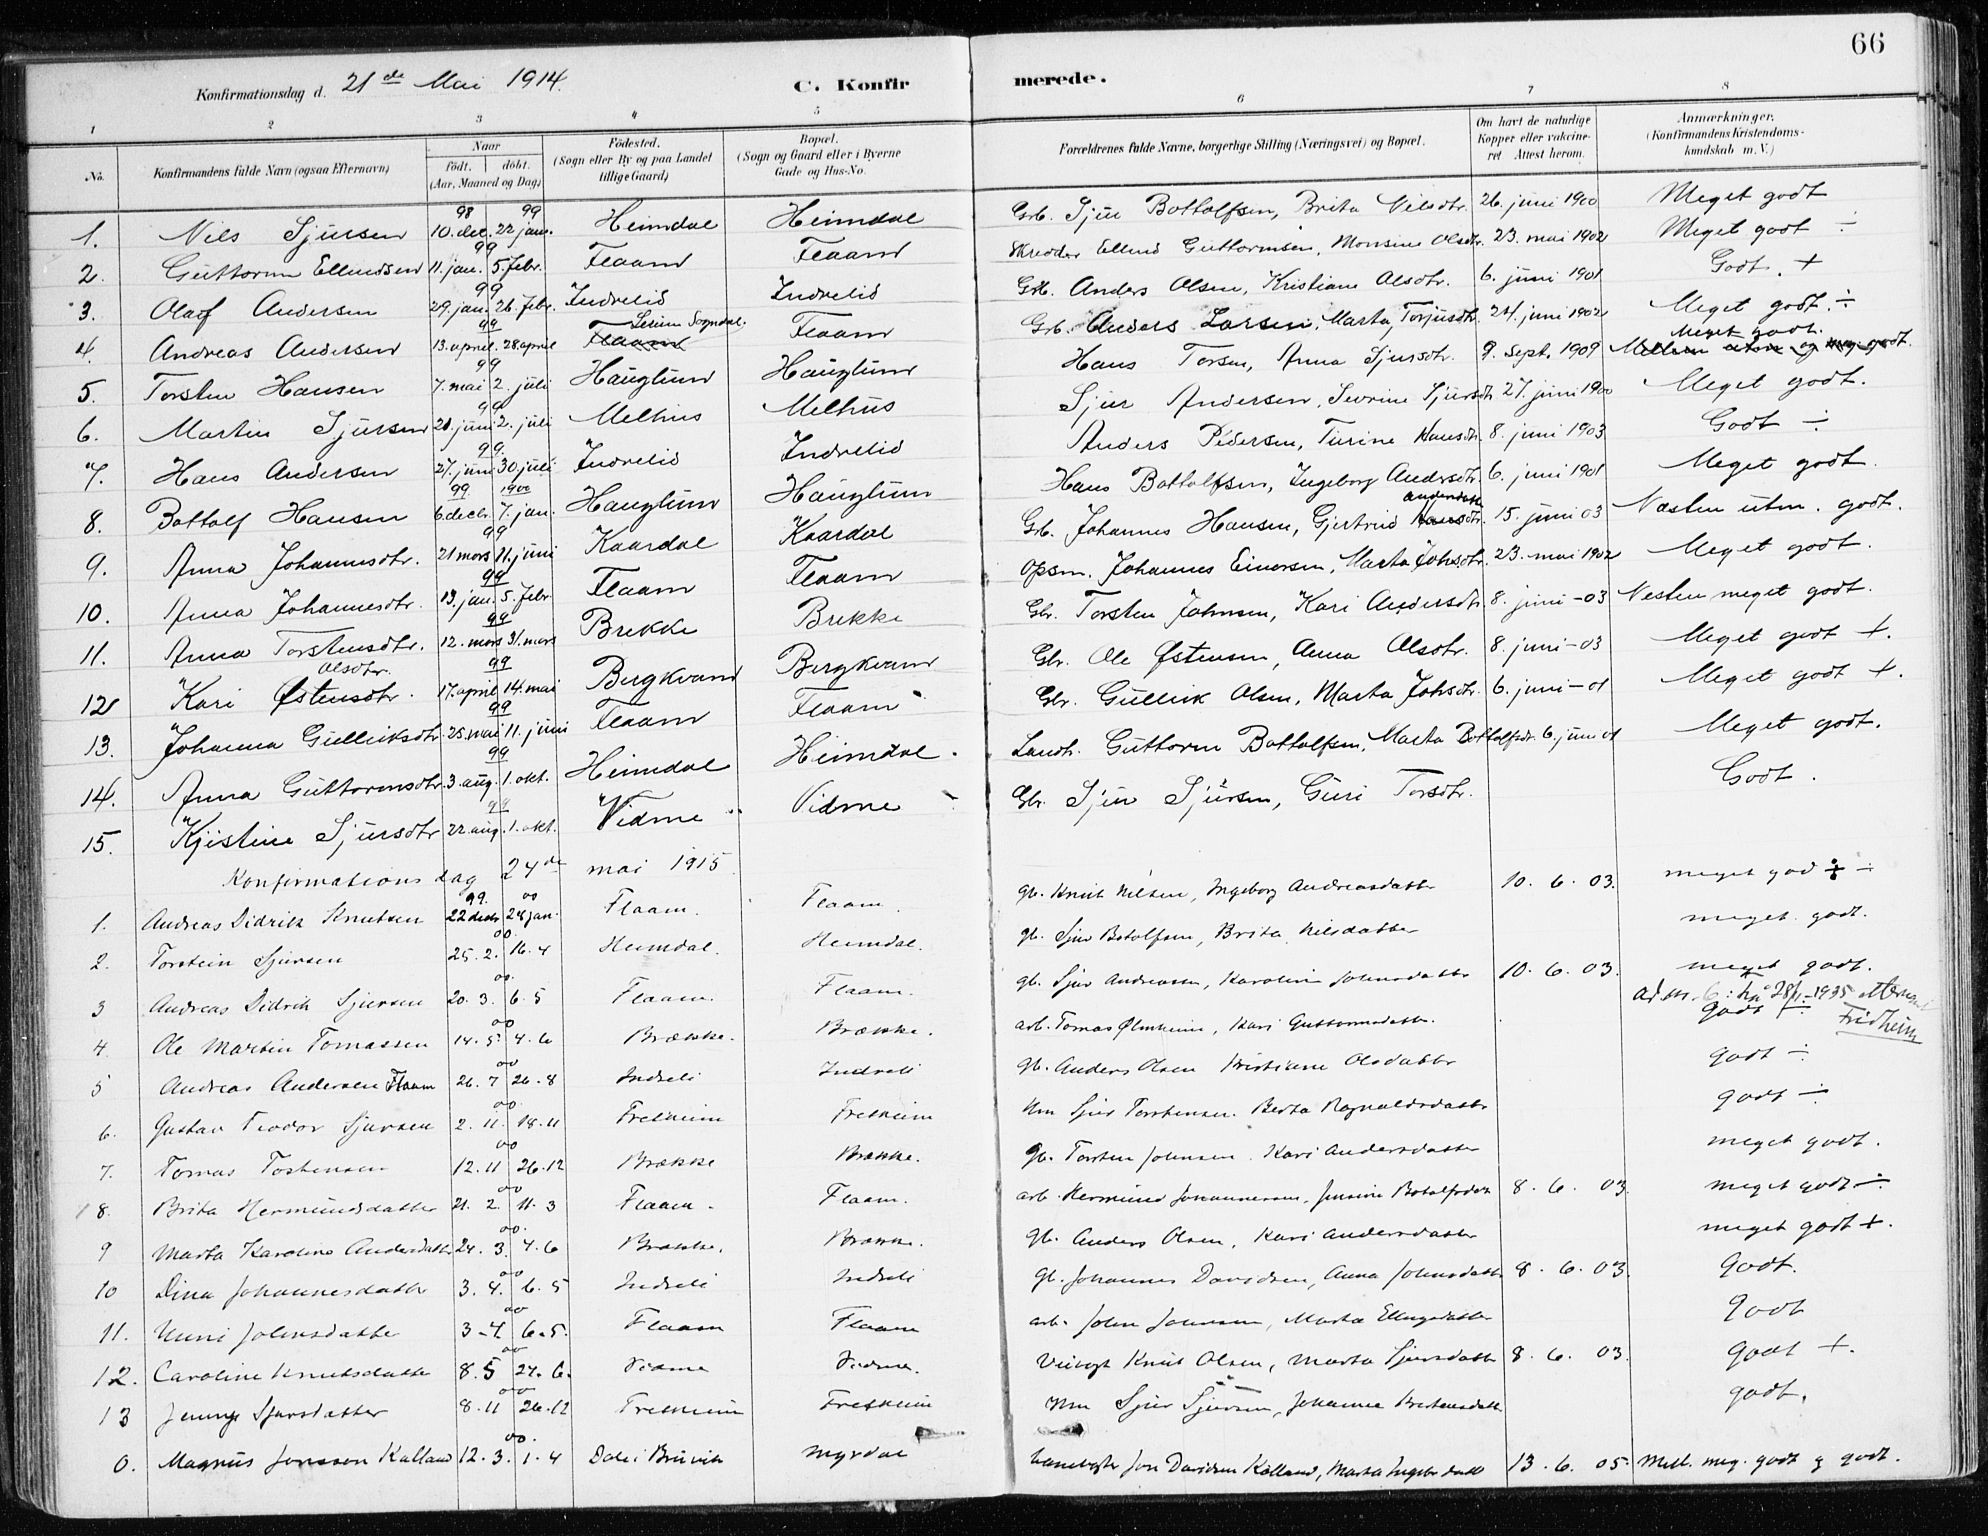 66
Konfirmationsdag d. 21de Mai 1914. C. Konfirmerede.
1 2 3 4 5 6 7 8
No. Konfirmandens fulde Navn (ogsaa Efternavn) Naar født. døbt. (Aar, Maaned og Dag) Fødested. (Sogn eller By og paa Landet tillige Gaard) Bopæl. (Sogn og Gaard eller i Byerne Gade og Hus-No. Forældrenes fulde Navne, borgerlige Stilling (Næringsvei) og Bopæl. Om havt de naturlige Kopper eller vakcineret Attest herom. Anmærkninger. (Konfirmandens Kristendomskundskab m. V.)
1. Nils Sjursen 98 10. dec. 99 22 jan. Heimdal Heimdal Grb. Sjur Bottolfsen, Brita Nilsdtr. 26. juni 1900 Meget godt
2. Guttorm Ellendsen 99 11. jan. 5. febr. Flaam Flaam Skredder Ellend Guttormsen, Monsine Olsdtr. 23. mai 1902 Meget godt ÷
3. Olaf Andersen 99 29. jan. 26. febr. Indrelid Indrelid Grb. Anders Olsen, Kristiane Olsdtr. 6. juni 1901 Godt. +
4. Andreas Andersen 99 13. april. 28. april Flaam Sogndal. Flaam Grb. Anders Larsen, Marta Torjusdtr. 24. juni 1902 Meget godt. ÷
5. Torsten Hansen 99 7. mai 2. juli Hauglum Hauglum Hans Torsen, Anna Sjursdtr. 9. Sept. 1909 Meget godt.
6. Martin Sjursen 99 21. juni 2. juli Melhus Melhus Sjur Andersen, Sevrine Sjursdtr 27. juni 1900 Meget godt.
7. Hans Andersen 99. 27. juni 30 juli Indrelid Indrelid Anders Pedersen, Turine Hansdtr. 8. juni 1903 Godt ÷
8. Bottolf Hansen 99 6 decbr. 1900 7. jan. Hauglum Hauglum Hans Bottolfsen, Ingeborg Andersdtr. 6. juni 1901 Meget godt.
9. Anna Johannesdtr. 99 21 mars 11. juni Kaardal Kaardal Grb. Johannes Hansen, Gjertrud Hansdtr. Andersdtr 15. juni 03 Næsten utm. godt.
10. Anna Johannesdtr. 99 13. jan. 5. febr Flaam Flaam Opsm. Johannes Einersen, Marta Johsdtr. 23. mai 1902 Meget godt.
11. Anna Torstensdtr. 99 12. mars 31. mars Brekke Brekke Gbr. Torsten Johnsen, Kari Andersdtr 8. juni -03 Nesten meget godt.
12 Kari Østensdtr. Olsdtr. 99 17. april 14. mai Bergkvam Bergkvam Gbr. Ole Østensen, Anna Olsdtr. 8. juni -03 Meget godt +.
13. Johanna Gulleiksdtr. 99 25. mai 11. juni Flaam Flaam Gbr. Gulleik Olsen, Marta Johsdtr. 6. juni -01 Meget godt +.
14. Anna Guttormsdtr. 99 3. aug. 1. okt. Heimdal Heimdal. Landh. Guttorm Bottolfsen, Marta Bottolfsdt. 6. juni 01 Meget godt.
15. Kjistine Sjursdtr 99 22 aug. 1. okt. Vidme Vidme Gbr. Sjur Sjursen, Guri Torsdtr. Godt.
Konfirmations dag 24de mai 1915
1. Andreas Didrik Knutsen 99. 22 decbr 00 28 jan. Flaam. Flaam. gb. Knut Nilsen, Ingeborg Andreasdatter 10. 6. 03. meget god ÷
2. Torstein Sjursen 00. 25. 2. 16. 4 Heimdal. Heimdal. gb. Sjur Botolfsen, Brita Nilsdatter meget godt.
3 Andreas Didrik Sjursen 00. 20. 3. 6. 5 Flaam. Flaam. gb. Sjur Andreassen, Karoline Johnsdatter 10. 6. 03. meget godt.
4. Ole Martin Tomassen 00 14. 5. 4. 6 Brække. Brække. arb. Tomas Ølmheim, Kari Guttormsdatter. godt ÷
ad nr. 6: 1935 etternavn Fridheim
5 Andreas Andersen Flaam 00 26. 7 26. 8 Indreli Indreli gb. Anders Olsen Kristiane Olsdatter godt ÷
6. Gustav Teodor Sjursen 00. 2. 11. 18. 11 Fretheim Fretheim Hm Sjur Torstensen. Berta Ragnvaldsdatter godt ÷
7. Tomas Tostensen 00 12. 11 26. 12 Brække Brække. gb. Torsten Johnsen. Kari Andersdatter meget godt.
8. Brita Hermundsdatter 00 21. 2. 11. 3 Flaam. Flaam. arb. Hermund Johannessen, Jensine Botolfsdatt 8. 6. 03. meget godt ÷
9 Marta Karoline Andersdatter 00. 24. 3. 4. 6 Brække. Brække. gb. Anders Olsen, Kari Andersdatter meget godt +.
10 Dina Johannesdatter 00 3. 4. 6. 5 Indreli Indreli gb. Johannes Davidsen, Anna Johnsdatter 8. 6. 03. Godt.
11. Unni Johnsdatter 00 3. 4. 6. 5. Flaam Flaam arb. John Johnsen, Marta Ellingsdatter Godt
12. Caroline Knutsdatter 00 8. 5 24. 6. Vidme Vidme. Veivogt Knut Olsen, Marta Sjursdatter 8. 6. 03. godt +.
13 Jenny Sjursdatter 00 8. 11 26. 12 Fretheim Fretheim Hm Sjur Sjursen, Johanna godt.
0. Magnus Jonsson Kalland 00. 12. 3. 1. 4 Dale i Bruvik Myrdal banevogter Jon Davidsen Kalland, Marta 13. 6. 05. Mell. meg. godt g godt.